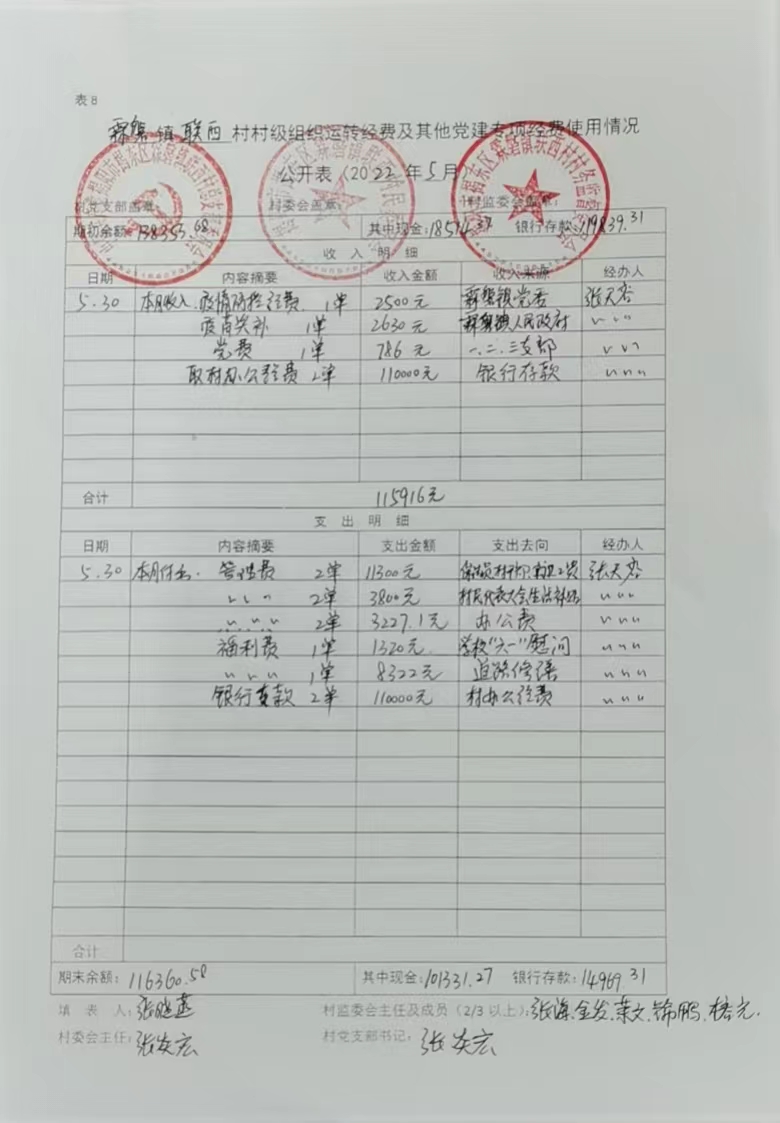 表8
霖磐镇联西村村级组织运转经费及其他党建专项经费使用情况
公开表（2022年5月）
村党支部盖章: 村委会盖章: 村监委会盖章:
期初余额: 138353.68 其中现金: 18514.37 银行存款: 119839.31
收 入 明 细
日期 内容摘要 收入金额 收入来源 经办人
5.30 本月收入.疫情防控经费. 1单 2500元 霖磐镇党委
1单 2630元 霖磐镇人民政府 〃〃〃
党费 1单 786元 一.二.三支部 〃〃〃
取村办公经费 2单 110000元 银行存款 〃〃〃
合计 115916元
支 出 明 细
日期 内容摘要 支出金额 支出去向 经办人
5.30 本月付出. 管理费 2单 11300元
〃〃〃 2单 3800元 村民代表大会生活补贴 〃〃〃
〃〃〃 2单 3227.1元 办公费 〃〃〃
福利费 1单 1320元. 学校"六一"慰问 〃〃〃
〃〃〃 1单 8322元 道路修缮 〃〃〃
银行存款 2单 110000元 村办公经费 〃〃〃
合计
期末余额: 116360.58 其中现金: 101331.27 银行存款: 14969.31
填 表 人:
村监委会主任及成员（2/3以上）:
村委会主任: 村党支部书记: